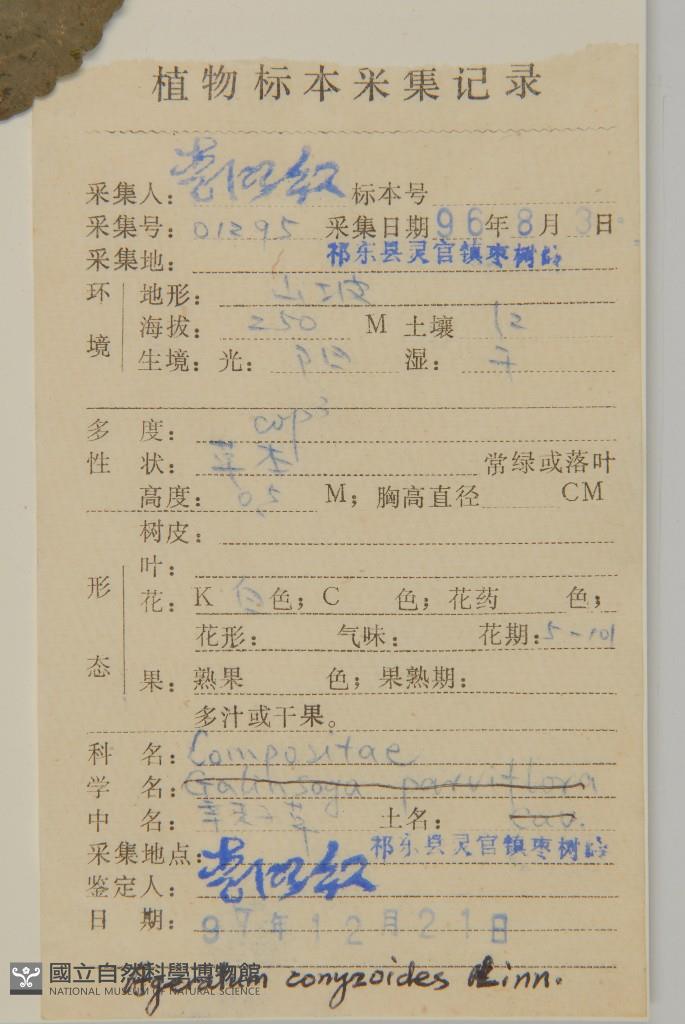 植物标本采集记录
采集人： 标本号
采集号：01295 采集日期96年8月3日
采集地： 祁东县灵官镇枣树岭
环境 地形：山坡
海拔：250 M 土壤 红
生境：光：阳 湿：干
多度：cop3
性状：草本 常绿或落叶
高度：0.5 M；胸高直径 CM
形态 树皮：
叶：
花：K 白色；C 色；花药 色；
花形： 气味： 花期：5-10月
果：熟果 色；果熟期：
多汁或干果。
科名：Compositae
学名：Galinsoga parviflora
中名： 土名： Cav.
采集地点： 祁东县灵官镇枣树岭
鉴定人：
日期：97年12月21日
Ageratum conyzoides Linn.
國立自然科學博物館
NATIONAL MUSEUM OF NATURAL SCIENCE